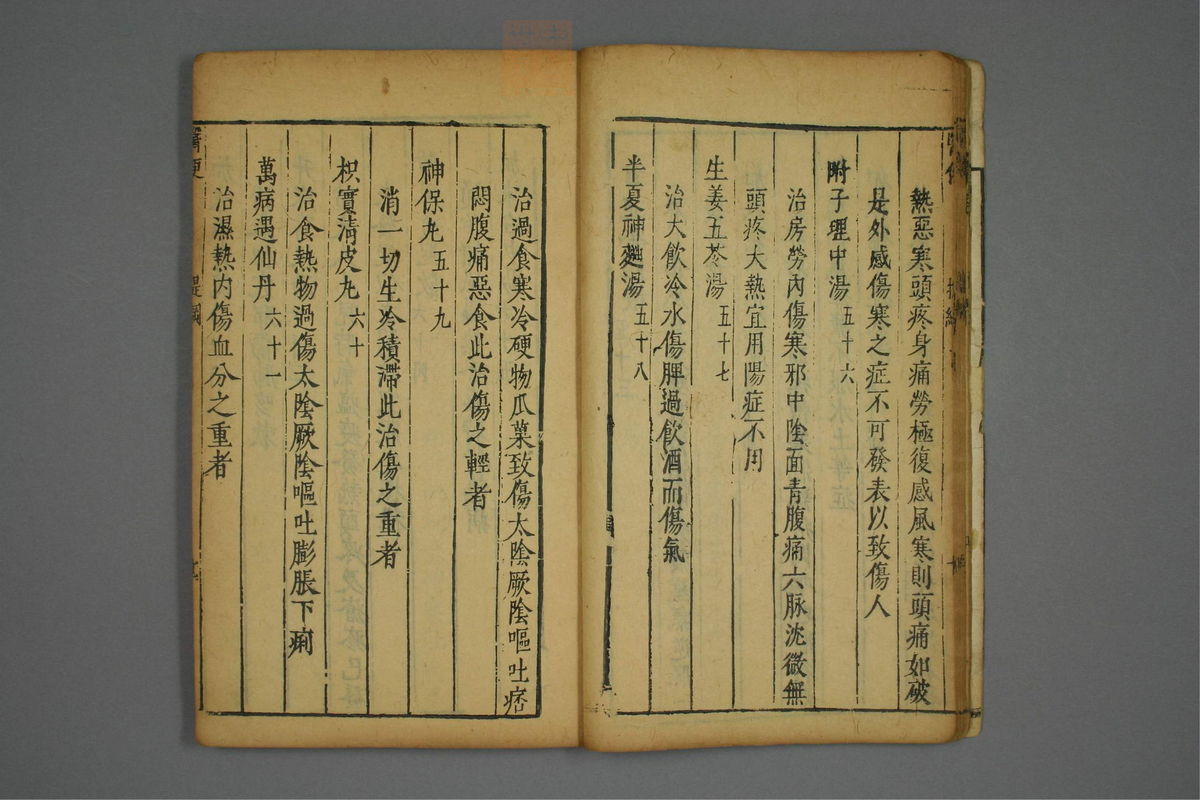 熱惡寒頭疼身痛勞極復感風寒則頭痛如破
是外感傷寒之症不可發表以致傷人
附子理中湯五十六
治房勞內傷寒邪中陰面青腹痛六脉沈微無
頭疼大熱宜用陽症不用
生姜五苓湯五十七
治大飲冷水傷脾過飲酒而傷氣
半夏神麯湯五十八
治過食寒冷硬物瓜菓致傷太陰厥陰嘔吐痞
悶腹痛惡食此治傷之輕者
神保丸五十九
消一切生冷積滯此治傷之重者
枳實清皮丸六十
治食熱物過傷太陰厥陰嘔吐膨脹下痢
萬病遇仙丹六十一
治濕熱內傷血分之重者